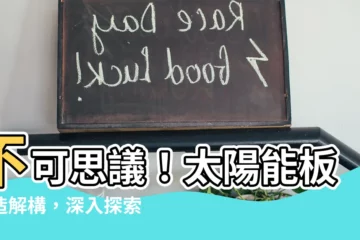 Race Day
Good Luck!
不可思議！太陽能板
造解構，深入探索